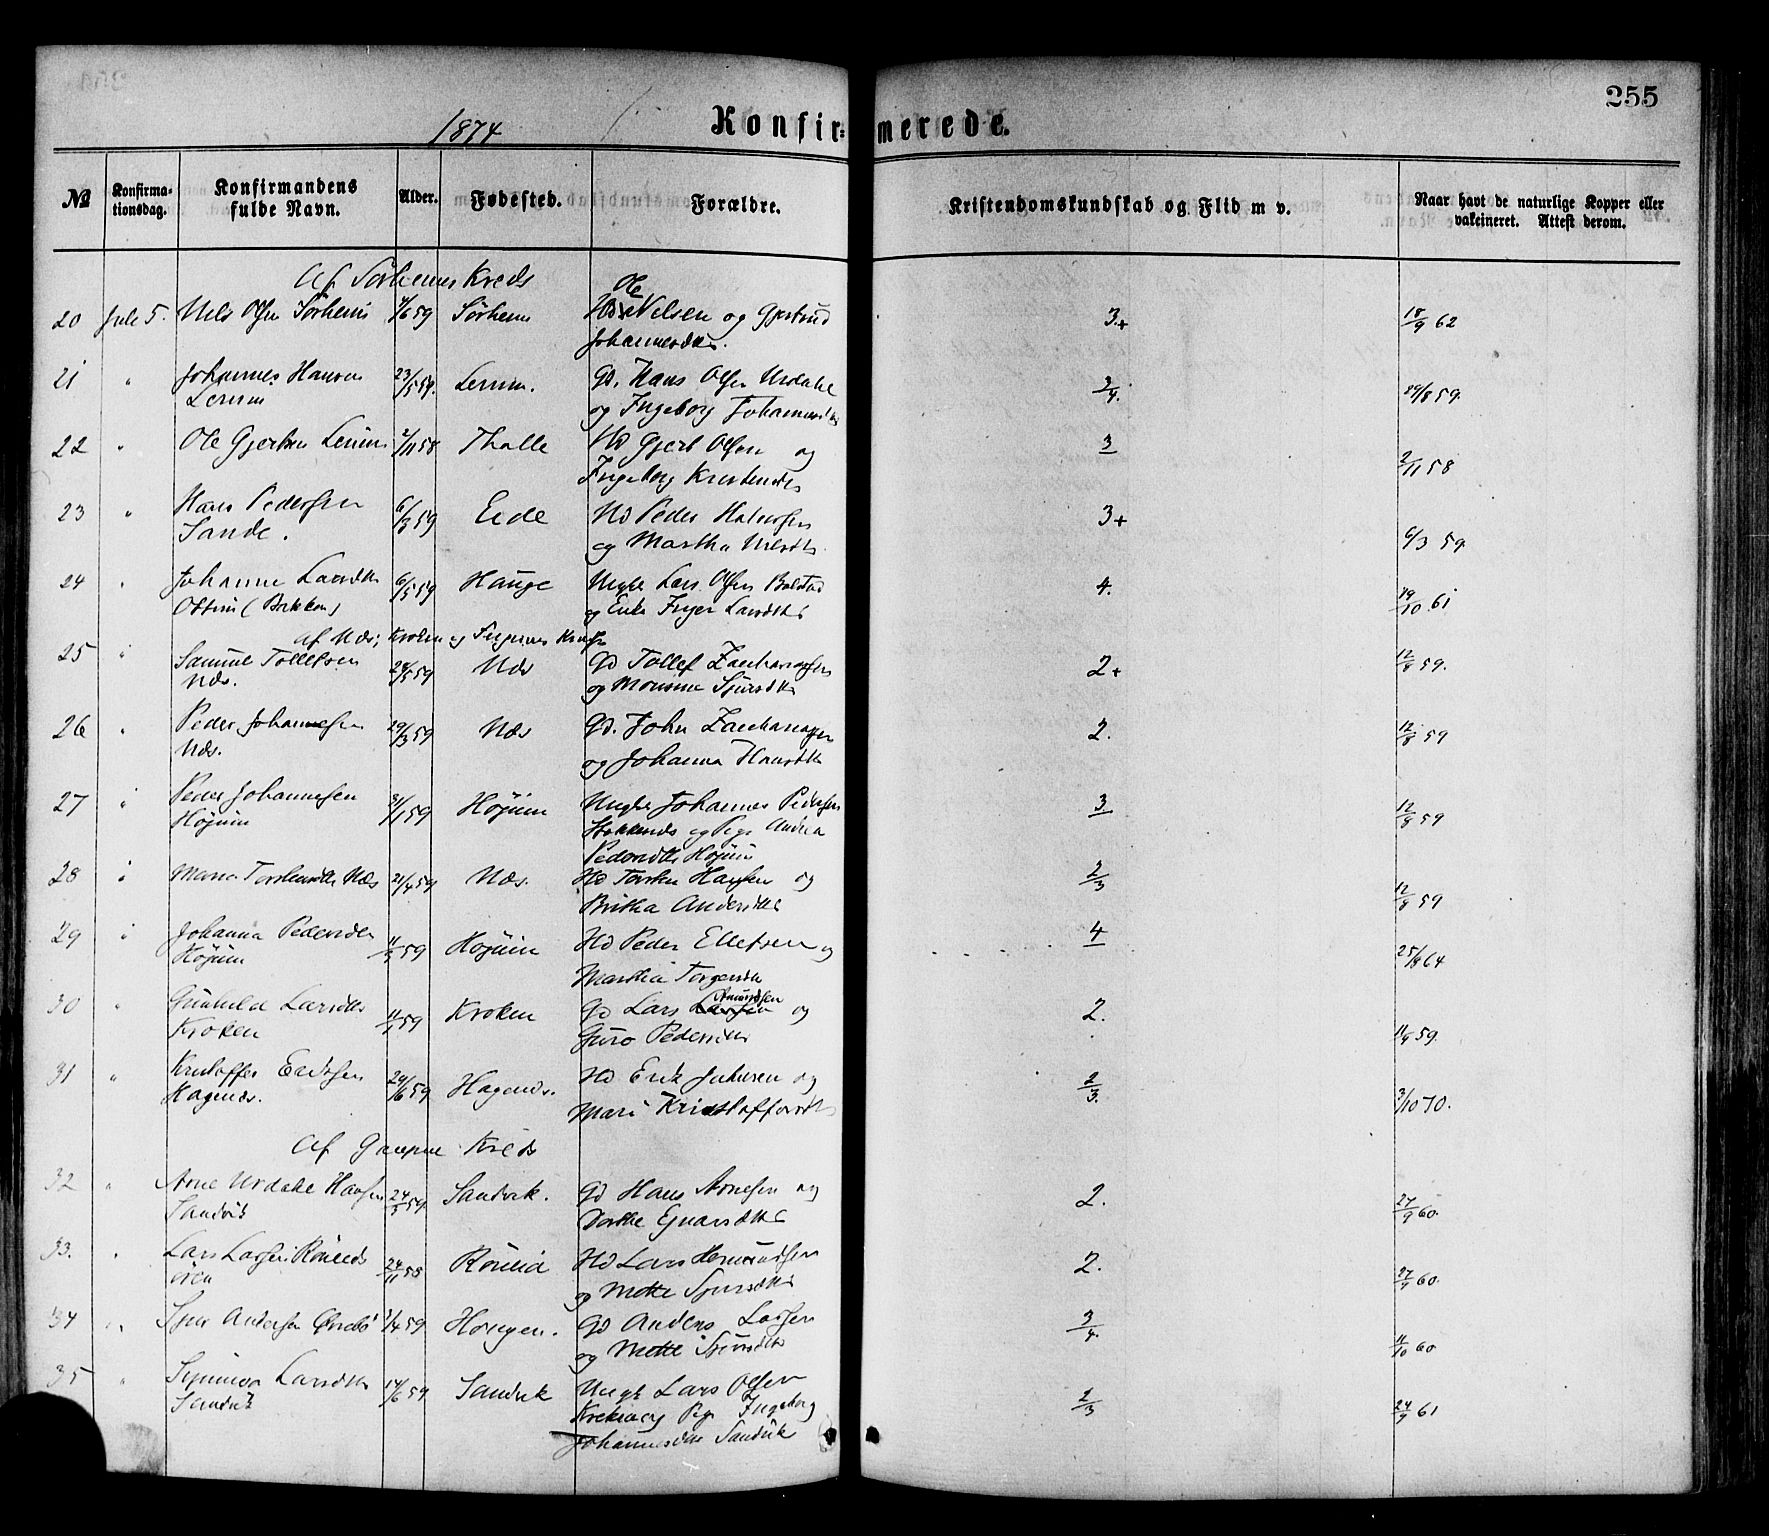 255
1874 Konfirmerede.
№ Konfirmationsdag. Konfirmandens fulde Navn. Alder. Fødested. Forældre. Kristendomskundskab og Flid m v. Naar havt de naturlige Kopper eller vakcineret. Attest derom.
Af Sørhems Kreds
Ole
20 Juli 5. Nils Olsen Sørheim /6 59 Sørheim Nielsen og Gjertrud 3+ 18/9 62
Johannesdtr.
21 " Johannes Hansen 23/5 59. Lerum. Gd. Hans Olsen Urdahl 3/4. 29/8 59.
Lerum og Ingeborg Johannesdtr
22 " Ole Gjertsen Lerum 2/11 58 Thalle Hd Gjert Olsen og 3 2/11 58
Ingeborg
23 " Hans Pedersen 6/3 59 Eide Hd Peder Halvorsen 3+ 6/3 59
Sande. og Martha Nilsdtr
24 " Johanne Larsdtr 6/5 59 Hauge Ungkr Lars Olsen Bolstad 4. 19/10 61
Ottum (Bakken) og Enke Inger Larsdtr
af Næs, Kroken og Kreds
25 " Samuel Tollefsen 28/5 59 Næs Gd Tollef Zachariasen 2+ 12/8 59.
Næs. og
26 " Peder Johannesen 29/3 59 Næs Gd. John Zachariasen 2. 12/8 59
Næs. og Johanna Hansdtr
27 " Peder Johannesen 31/1 59 Højum Ungkr Johannes Pedersen 3 12/8 59
Højum og Pige Andrea
Pedersdtr Højum
28 " Maria Torstensdtr Næs 21/4 59 Næs. Hd Torsten Hansen og 2/3 12/8 59
Britha Andersdtr
29 " Johanna Pedersdtr 59 Højum Hd Peder Ellefsen og 4 25/8 64
Højum Martha Torgersdtr
30 " Gunhild Larsdtr 59 Kroken Gd Lars Amundsen og 2. 59.
Kroken Guro Pedersdtr
31 " Kristoffer Eriksen 24/6 59 Hagenæs. Hd Erik Johnsen og 2/3. 3/10 70.
Hagenæs. Mari Kristoffersdtr
Af Gaupne Kreds
32 " Arne Urdahl Hansen 24/3 59 Sandvik. Gd Hans Arnesen og 2. 27/9 60.
Sandvik Dorthe
33. " Lars Larsen Røneids 24/11 58 Røneid Hd Lars Hermundsen 2. 27/9 60.
øren og Mette Sjursdtr
34 " Sjur Andersen /4 59 Hd Anders Larsen 3/4. 11/10 60
og Mette Sjursdtr
35 " Synneva Larsdtr 14/6 59 Sandvik Ungk Lars Olsen 2/3 61
Sandvik Pige Ingeborg
Johannesdtr Sandvik